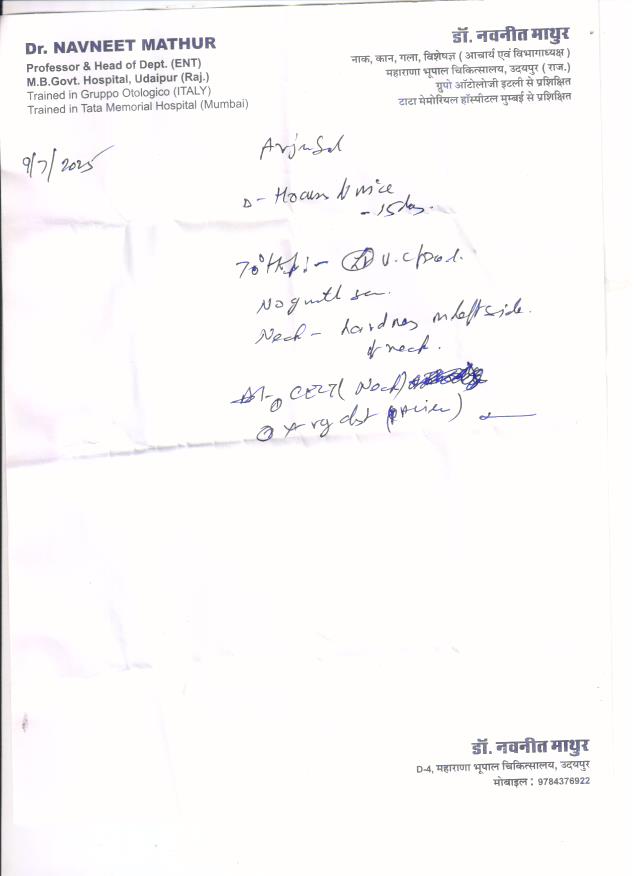 Dr. NAVNEET MATHUR
Professor & Head of Dept. (ENT)
M.B.Govt. Hospital, Udaipur (Raj.)
Trained in Gruppo Otologico (ITALY)
Trained in Tata Memorial Hospital (Mumbai)
डॉ. नवनीत माथुर
नाक, कान, गला, विशेषज्ञ ( आचार्य एवं विभागाध्यक्ष )
महाराणा भूपाल चिकित्सालय, उदयपुर ( राज.)
ग्रुपो ऑटोलोजी इटली से प्रशिक्षित
टाटा मेमोरियल हॉस्पीटल मुम्बई से प्रशिक्षित
9/7/2025
- 15 days.
70°
No growth seen
Neck - hardness in left side
of neck.
① CECT ( Neck)
②
डॉ. नवनीत माथुर
D-4, महाराणा भूपाल चिकित्सालय, उदयपुर
मोबाइल : 9784376922